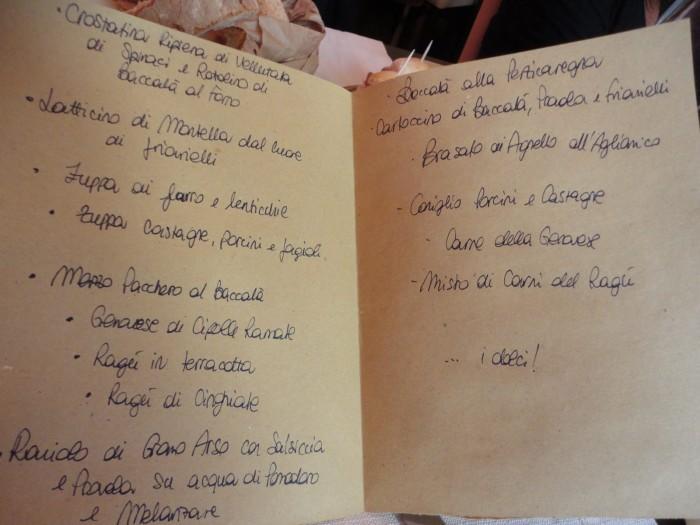 • Crostatina Ripiena di Vellutata
di Spinaci e Rotolino di
Baccalà al Forno
• Latticino di Montella dal cuore
di friarielli
• Zuppa di farro e lenticchie
• Zuppa castagne, porcini e fagioli.
• Mezzo Pacchero al Baccalà
• Genovese di Cipolle Ramate
• Ragù in terracotta
• Ragù di Cinghiale
• Raviolo di Grano Arso con Salsiccia
e Provola su acqua di Pomodoro
e Melanzane
• Baccalà alla Perticaregna
• Cartoccino di Baccalà, Provola e friarielli
• Brasato di Agnello all'Aglianico
- Coniglio Porcini e Castagne
- Carne della Genovese
- Misto di Carni del Ragù
... i dolci!